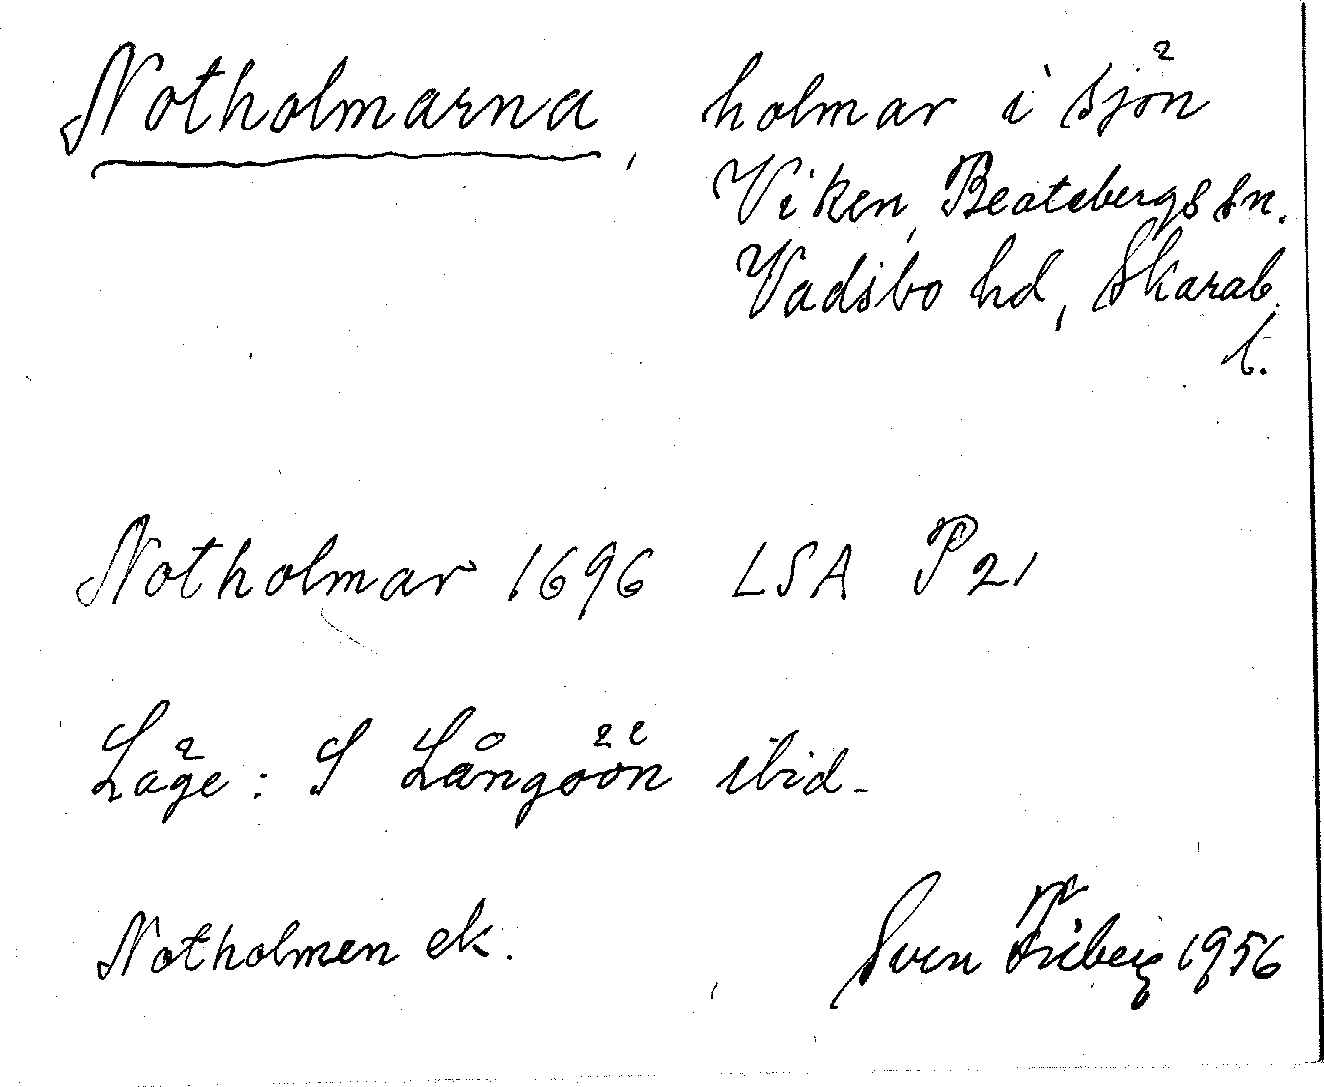 Notholmarna, holmar i sjön
Viken, Beatebergs sn.
Vadsbo hd, Skarab.
l.
Notholmar 1696 LSA P 21
Läge: S Långöön ibid.
Notholmen ek.
Sven Friberg 1956